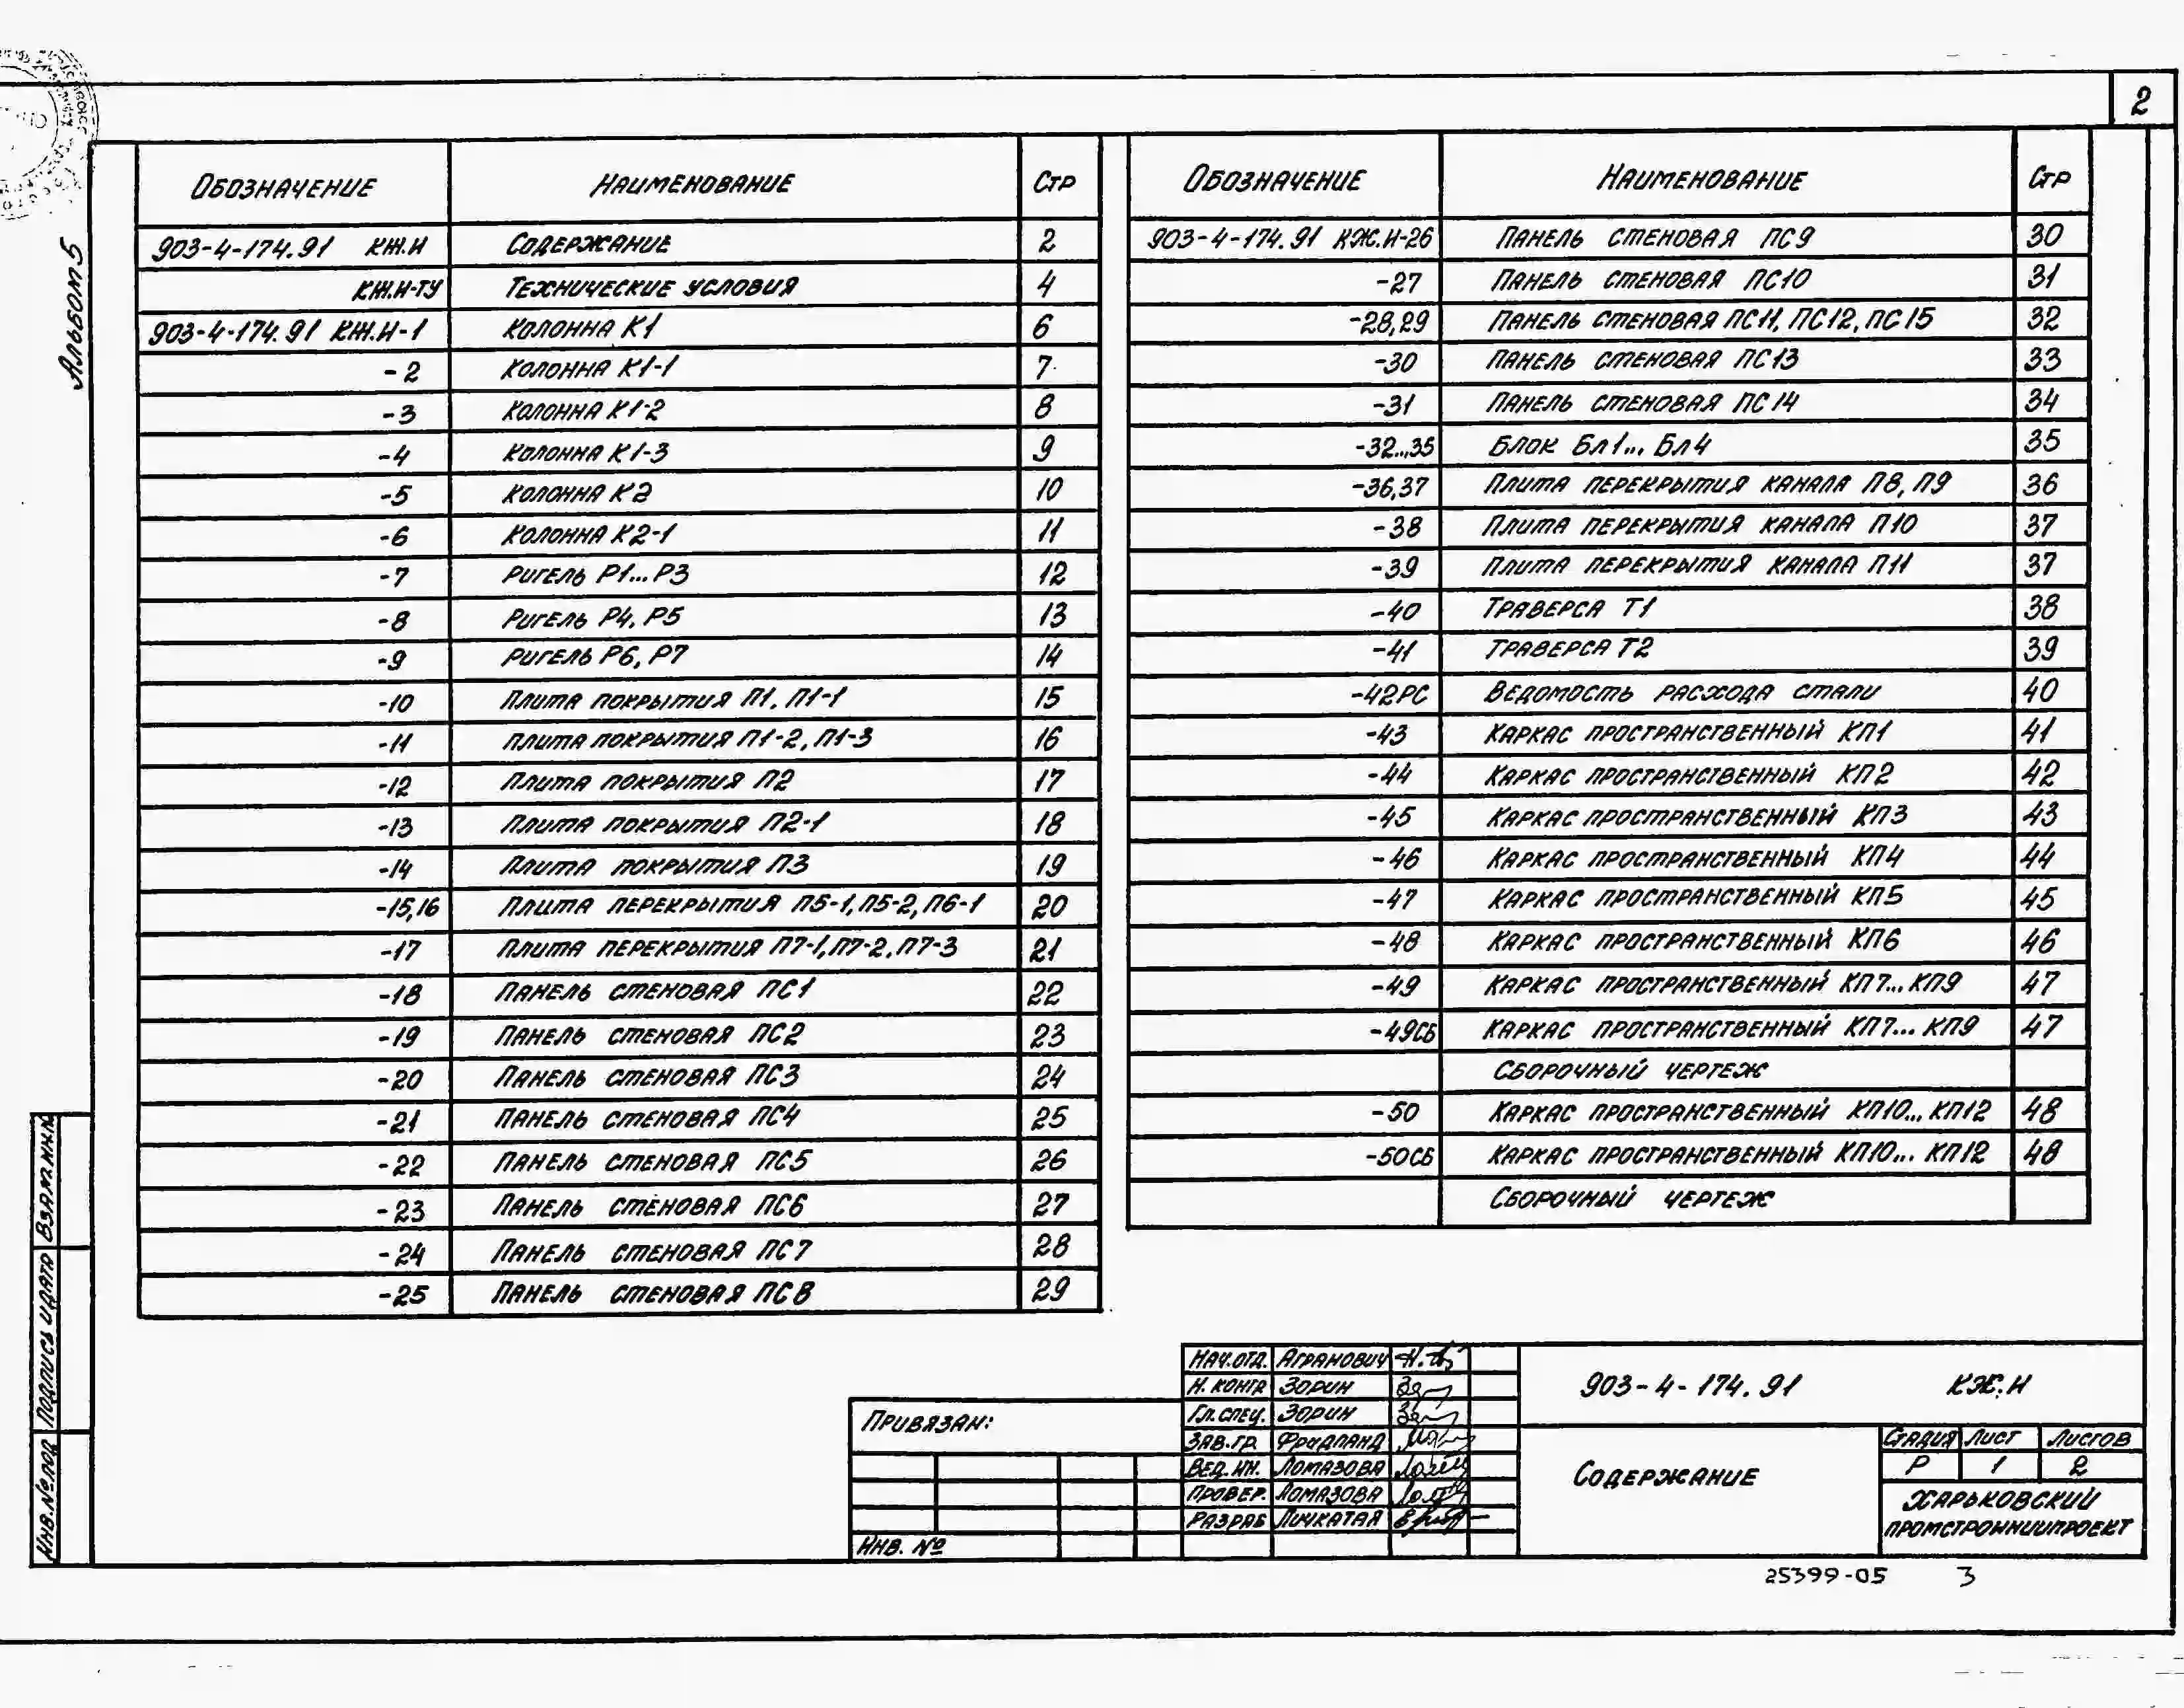 2
Альбом 5
Обозначение Наименование Стр
903-4-174.91 КЖ.И Содержание 2
КЖ.И-ТУ Технические условия 4
903-4-174.91 КЖ.И-1 Колонна К1 6
-2 Колонна К1-1 7
-3 Колонна К1-2 8
-4 Колонна К1-3 9
-5 Колонна К2 10
-6 Колонна К2-1 11
-7 Ригель Р1...Р3 12
-8 Ригель Р4, Р5 13
-9 Ригель Р6, Р7 14
-10 Плита покрытия П1, П1-1 15
-11 Плита покрытия П1-2, П1-3 16
-12 Плита покрытия П2 17
-13 Плита покрытия П2-1 18
-14 Плита покрытия П3 19
-15,16 Плита перекрытия П5-1, П5-2, П6-1 20
-17 Плита перекрытия П7-1, П7-2, П7-3 21
-18 Панель стеновая ПС1 22
-19 Панель стеновая ПС2 23
-20 Панель стеновая ПС3 24
-21 Панель стеновая ПС4 25
-22 Панель стеновая ПС5 26
-23 Панель стеновая ПС6 27
-24 Панель стеновая ПС7 28
-25 Панель стеновая ПС8 29
Обозначение Наименование Стр
903-4-174.91 КЖ.И-26 Панель стеновая ПС9 30
-27 Панель стеновая ПС10 31
-28,29 Панель стеновая ПС11, ПС12, ПС15 32
-30 Панель стеновая ПС13 33
-31 Панель стеновая ПС14 34
-32...35 Блок Бл1... Бл4 35
-36,37 Плита перекрытия канала П8, П9 36
-38 Плита перекрытия канала П10 37
-39 Плита перекрытия канала П11 37
-40 Траверса Т1 38
-41 Траверса Т2 39
-42РС Ведомость расхода стали 40
-43 Каркас пространственный КП1 41
-44 Каркас пространственный КП2 42
-45 Каркас пространственный КП3 43
-46 Каркас пространственный КП4 44
-47 Каркас пространственный КП5 45
-48 Каркас пространственный КП6 46
-49 Каркас пространственный КП7...КП9 47
-49СБ Каркас пространственный КП7...КП9 47
Сборочный чертеж
-50 Каркас пространственный КП10...КП12 48
-50СБ Каркас пространственный КП10...КП12 48
Сборочный чертеж
Взам.инв.№
Подпись и дата
Инв.№ под
Привязан:
Инв. №
Нач.отд. Агранович
Н.контр Зорин
Гл.спец. Зорин
Зав.гр. Фридланд
Вед.ин. Ломазова
Провер. Ломазова
Разраб Личкатая
903-4-174.91 КЖ.И
Содержание
Стадия Лист Листов
Р 1 2
Харьковский
Промстройниипроект
25399-05 3